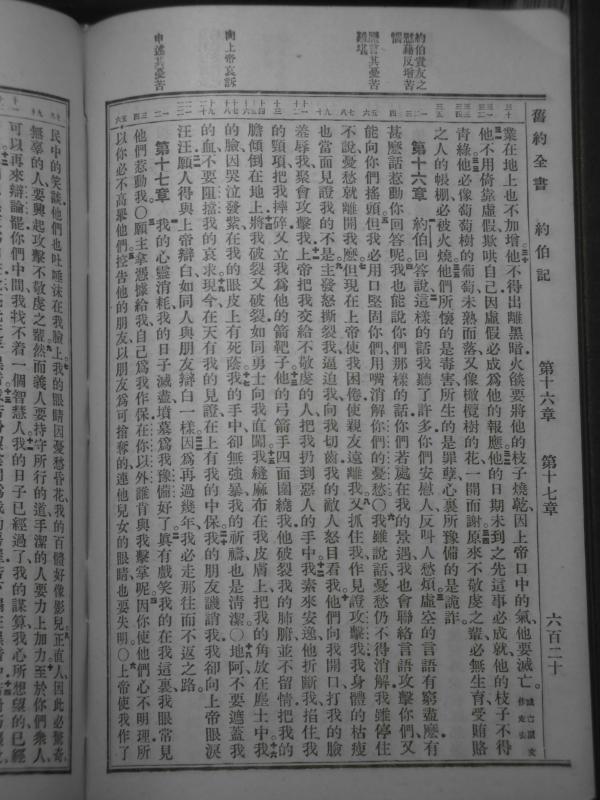 舊約全書 約伯記 第十六章 第十七章 六百二十
約伯責友之慰藉反增苦惱
歷言其憂苦難堪
向上帝哀訴
申述其憂苦
業在地上也不加增他不得出離黑暗火燄要將他的枝子燒乾因上帝口中的氣他要滅亡
他不用倚靠虛假欺哄自己因虛假必成為他的報應他的日期未到之先這事必成就他的枝子不得
青綠他必像葡萄樹的葡萄未熟而落又像橄欖樹的花一開而謝原來不敬虔之輩必無生育受賄賂
之人的帳棚必被火燒他們所懷的是毒害所生的是罪孽心裏所豫備的是詭詐
第十六章 約伯回答說這樣的話我聽了許多你們安慰人反叫人愁煩虛空的言語有窮盡麼有
甚麼話惹動你回答呢我也能說你們那樣的話你們若處在我的景遇我也會聯絡言語攻擊你們又
能向你們搖頭但我必用口堅固你們用嘴消解你們的憂愁〇我雖說話憂愁仍不得消解我雖停住
不說憂愁就離開我麼但現在上帝使我困倦使親友遠離我又抓住我作見證攻擊我我身體的枯瘦
也當面見證我的不是主發怒撕裂我逼迫我向我切齒我的敵人怒目看我他們向我開口打我的臉
羞辱我聚會攻擊我上帝把我交給不敬虔的人把我扔到惡人的手中我素來安逸他折斷我掐住我
的頸項把我摔碎又立我為他的箭靶子他的弓箭手四面圍繞我他破裂我的肺腑並不留情把我的
膽傾倒在地上將我破裂又破裂如同勇士向我直闖我縫麻布在我皮膚上把我的角放在塵土中我
的臉因哭泣發紫在我的眼皮上有死蔭我的手中卻無強暴我的祈禱也是清潔〇地阿不要遮蓋我
的血不要阻擋我的哀求現今在天有我的見證在上有我的中保我的朋友譏誚我我卻向上帝眼淚
汪汪願人得與上帝辯白如同人與朋友辯白一樣因為再過幾年我必走那往而不返之路
第十七章 我的心靈消耗我的日子滅盡墳墓為我豫備好了眞有戲笑我的在我這裏我眼常見
他們惹動我〇願主拿憑據給我自己為我作保在你以外誰肯與我擊掌呢因你使他們心不明理所
以你必不高舉他們控告他的朋友以朋友為可搶奪的連他兒女的眼睛也要失明〇上帝使我作了
民中的笑談他們也吐唾沫在我臉上我的眼睛因憂愁昏花我的百體好像影兒正直人因此必驚奇
無辜的人要興起攻擊不敬虔之輩然而義人要持守所行的道手潔的人要力上加力至於你們衆人
可以再來辯論罷你們中間我找不着一個智慧人我的日子已經過了我的謀算我心所想望的已經